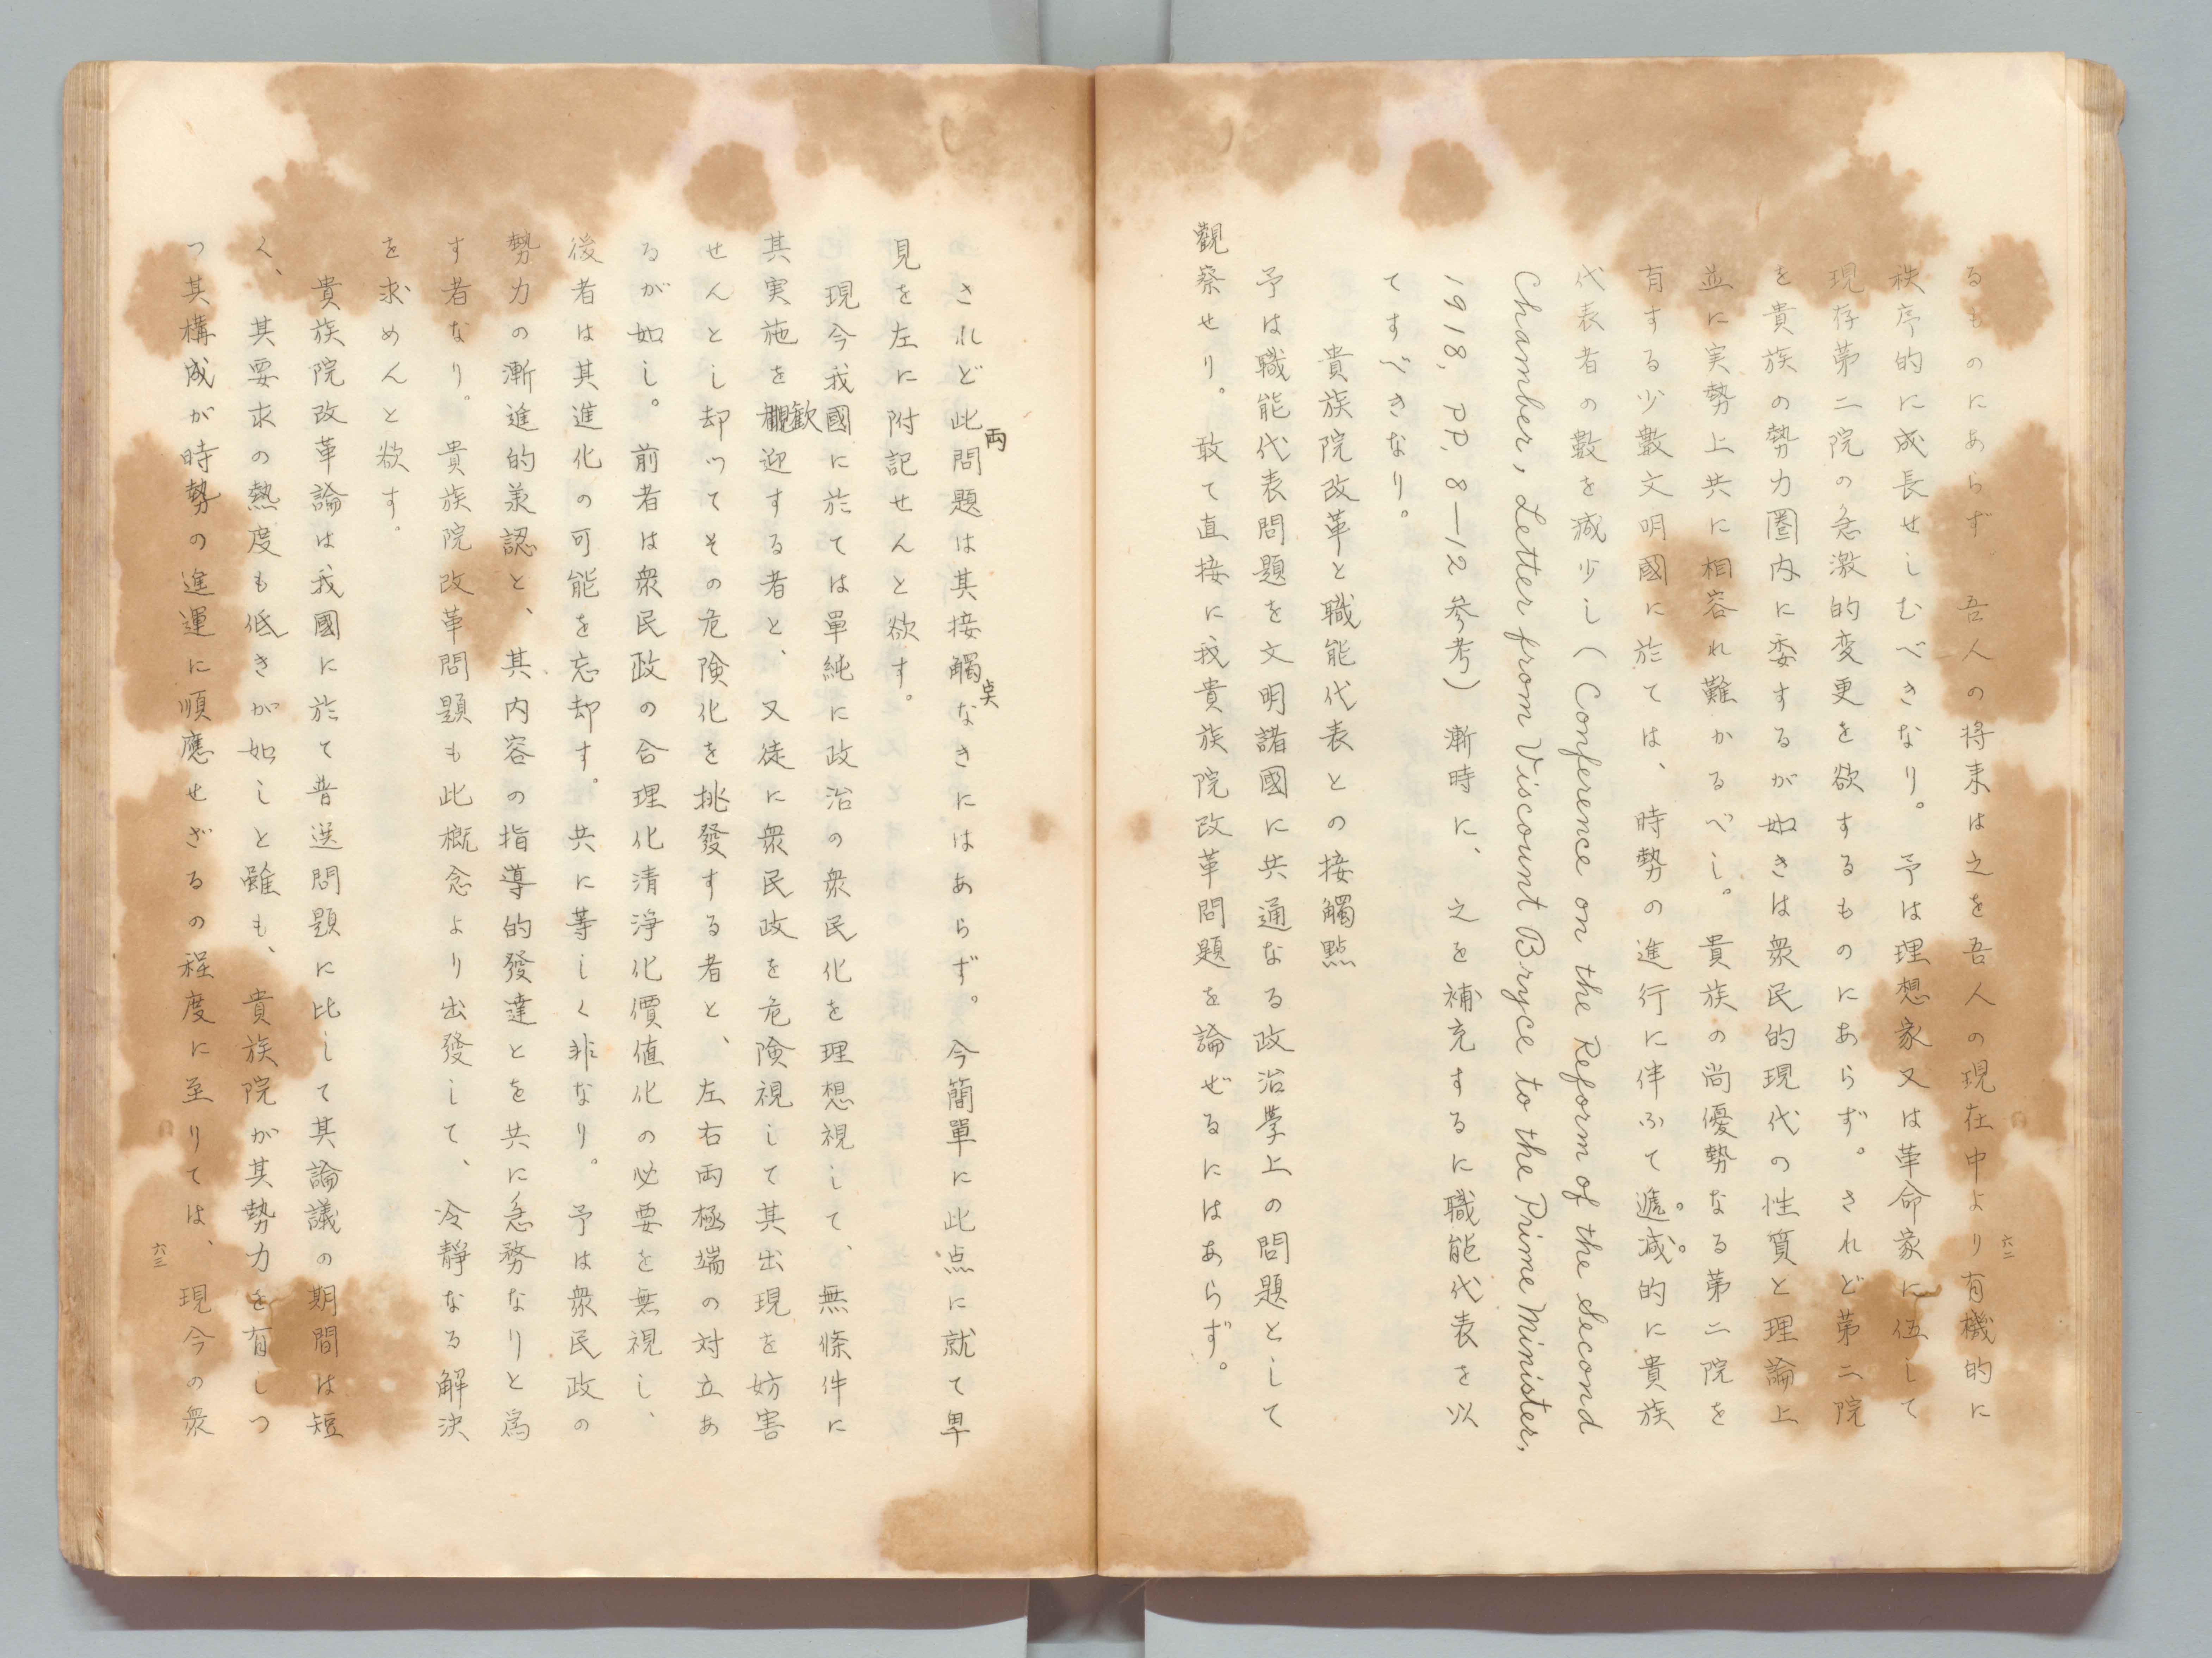 るものにあらず。吾人の将来は之を吾人の現在中より有機的に
秩序的に成長せしむべきなり。予は理想家又は革命家に伍して
現存第二院の急激的変更を欲するものにあらず。されど第二院
を貴族の勢力圏内に委するが如きは衆民的現代の性質と理論上
並に実勢上共に相容れ難かるべし。貴族の尚優勢なる第二院を
有する少數文明國に於ては、時勢の進行に伴ふて遞減的に貴族
代表者の數を減少し(Conference on the Reform of the Second
Chamber, Letter from Viscount Bryce to the Prime Minister,
1918, PP. 8—12 参考)漸時に、之を補充するに職能代表を以
てすべきなり。
貴族院改革と職能代表との接觸點
予は職能代表問題を文明諸國に共通なる政治學上の問題として
觀察せり。敢て直接に我貴族院改革問題を論ぜるにはあらず。
六二
されど此両問題は其接觸点なきにはあらず。今簡單に此点に就て卑
見を左に附記せんと欲す。
現今我國に於ては單純に政治の衆民化を理想視して、無條件に
其実施を歓迎する者と、又徒に衆民政を危険視して其出現を妨害
せんとし却ってその危険化を挑發する者と、左右両極端の対立あ
るが如し。前者は衆民政の合理化清淨化價値化の必要を無視し、
後者は其進化の可能を忘却す。共に等しく非なり。予は衆民政の
勢力の漸進的羕認と、其内容の指導的發達とを共に急務なりと爲
す者なり。貴族院改革問題も此概念より出發して、冷靜なる解決
を求めんと欲す。
貴族院改革論は我國に於て普選問題に比して其論議の期間は短
く、其要求の熱度も低きが如しと雖も、貴族院が其勢力を有しつ
つ其構成が時勢の進運に順應せざるの程度に至りては、現今の衆
六三